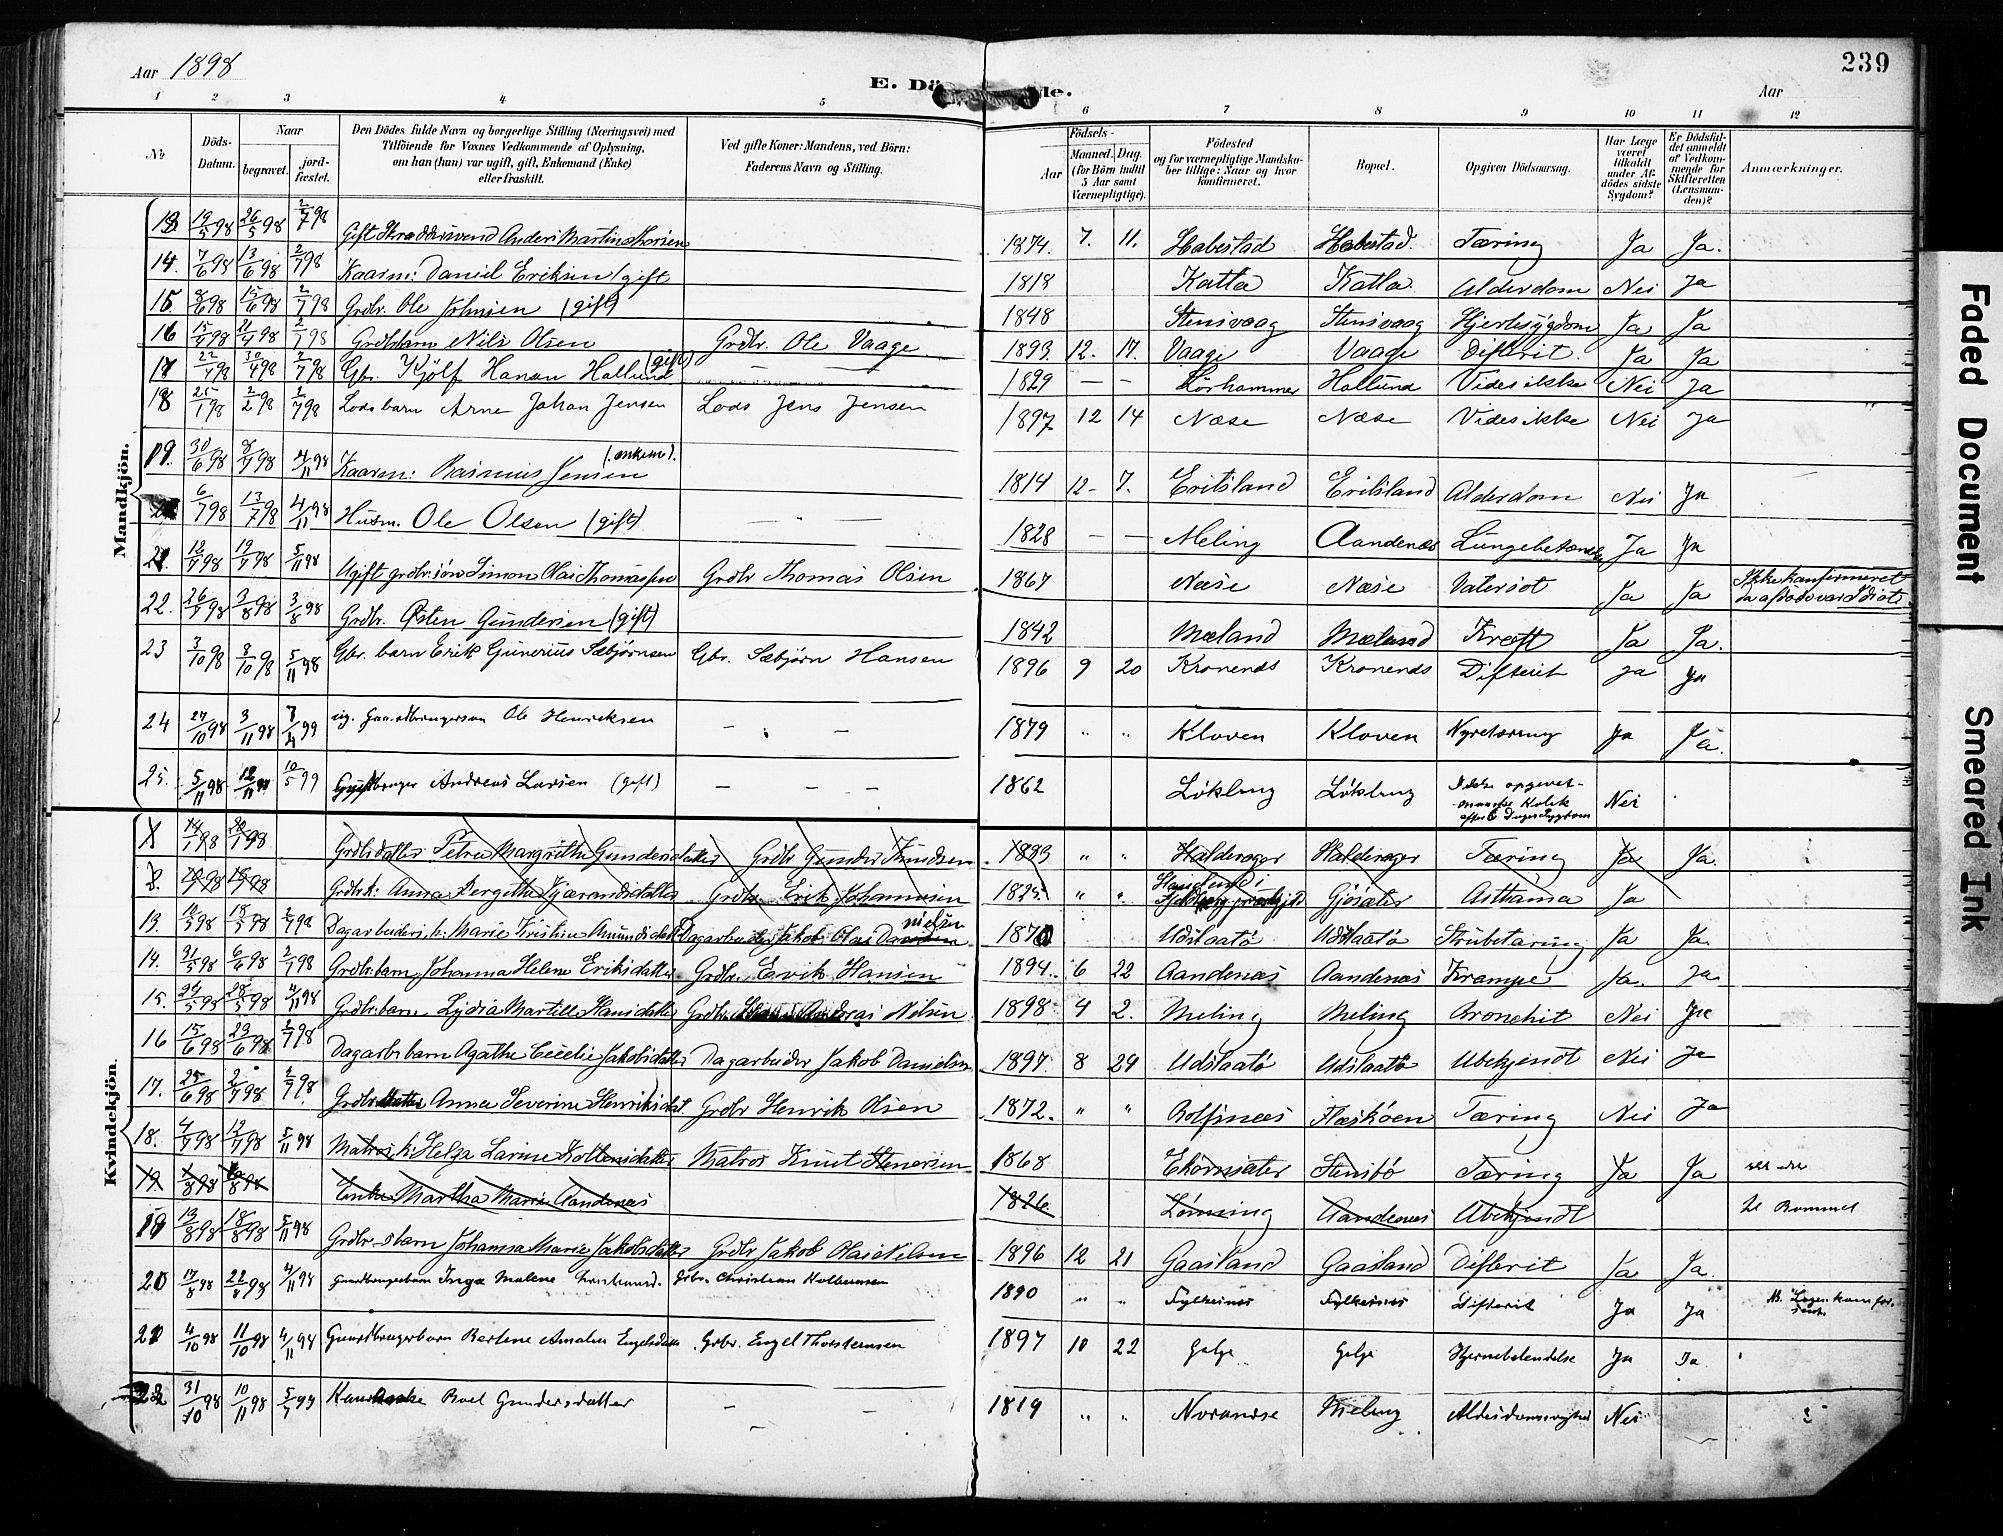 Aar 1898
E. Dö
de.
Aar
239
1 2 3 4 5 6 7 8 9 10 11 12
No
Döds-Datum.
Naar begravet. jordfæstet.
Den Dödes fulde Navn og borgerlige Stilling (Næringsvei) med Tilföiende for Voxnes Vedkommende af Oplysning, om han (hun) var ugift, gift, Enkemand (Enke) eller fraskilt.
Ved gifte Koner: Mandens, ved Börn: Faderens Navn og Stilling.
Födsels-
Aar
Maaned. Dag. (for Börn indtil 5 Aar samt Værnepligtige).
Födested og for værnepligtige Mandskaber tillige: Naar og hvor konfirmeret.
Bopæl.
Opgiven Dödsaarsag.
Har Læge været tilkaldt under Afdödes sidste Sygdom?
Er Dödsfaldet anmeldt af Vedkommende for Skifteretten (Lensmanden)?
Anmærkninger.
Mandkjön.
13 19/5 98 26/5 98 2/7 98 Gift Anders Martin Thorsen 1874. 7. 11. Habestad Habestad. Tæring Ja Ja.
14. 7/6 98 13/6 98 2/7 98 Kaarm: Daniel Eriksen (gift 1818 Katla Katla Alderdom Nei Ja
15. 8/6 98 15/6 98 2/7 98 Grdbr. Ole Johnsen (gift) 1848 Stensvaag Stensvaag Hjertesygdom Ja Ja
16 15/4 98 21/4 98 2/7 98 Grdbrbarn Nils Olsen Grdbr. Ole Vaage 1893. 12. 17. Vaage Vaage Difterit. Ja Ja
17 22/4 98 30/4 98 2/7 98 Gbr. Kjölf Hanan Hallund (gift) — — 1829 — — Sörhammer Hallund Vides ikke Nei Ja
18 25/1 98 2/2 98 2/7 98 Lodsbarn Arne Johan Jensen Lods Jens Jensen 1897 12 14 Næse Næse Vides ikke Nei Ja
19. 30/6 98 8/7 98 4/11 98 Kaarm: Rasmus Jensen (enkem). 1814 12- 7. Eritsland Eritsland Alderdom Nei Ja
6/7 98 13/7 98 4/11 98 Husm. Ole Olsen (gift) — — 1828 — — Meling Aandenæs Lungebetændelse Ja Ja
21. 12/7 98 19/7 98 5/11 98 Ugift grdbr.sön Simon Olai Thomassen Grdbr Thomas Olsen 1867 Næse Næse Vatersot Ja Ja Ikke konfirmeret da afdöde var Idiot
22. 26/7 98 3/8 98 3/8 98 Grdbr. Östen Gundersen (gift) 1842 Mæland Mæland Kræft Ja Ja.
23 3/10 98 8/10 98 5/11 98 Gbr. barn Erik Gunerius Sæbjörnsen Gbr. Sæbjörn Hansen 1896 9 20 Kronenes Kronenes Difterit Ja Ja
24 27/10 98 3/11 98 99 ug. Gaardbrugersön Ole Henriksen — — 1879 „ „ Kloven Kloven Nyretæring Ja Ja.
25. 5/11 98 12/11 98 10/5 99 Andreas Larsen (gift) — — — 1862 Lökling Lökling Ikke opgivet - Kolik Nei
Kvindekjön
1 14/1 98 20/1 98 Grdbrdatter Petra Margrethe Gundersdatter Grdbr Gunder Knudsen 1893 „ „ Haldorager Haldorager Tæring Ja Ja.
Grdbr.k: Anna Bergitha Grdbr. Erik Johannesen 1825 „ „ Gjösæter Asthama Ja
13. 10/5 98 18/5 98 2/7 98 Dagarbeiders k. Marie Kristine Dagarbeider Jakob Olai 187 Udslaatö Udslaatö Strubetæring Ja Ja.
14. 31/5 98 6/6 98 2/7 98 Grdbr.barn Johanna Helene Eriksdatter Grdbr. Ervik Hansen 1894. 6 22 Aandenæs Aandenæs Krampe Ja. Ja.
15. 24/5 98 28/5 98 4/11 98 Grdbr.barn Lydia Martille Hansdatter Grdbr. Nilsen 1898 4 2. Meling Meling Bronchit Nei Ja
16 15/6 98 23/6 98 2/7 98 Dagarb. barn Agathe Cecelie Jakobsdatter Dagarbeider Jakob Danielsen 1897 8 24 Udslaatö Udslaatö Ubekjendt Nei Ja
17. 25/6 98 2/7 98 2/7 98 Grdbr.datter Anna Severine Henriksdat. Grdbr Henrik Olsen 1872. „ „ Rolfsnæs Flæsköen Tæring Nei Ja
18. 4/7 98 12/7 98 5/11 98 Matros k. Helga Larine Matros Knut Stenersen 1868 Ekornsæter Stensbö Tæring Ja Ja
19. 1/8 98 8/8 98 Enke Martha Marie Aandenæs 1826 Lönning Aandenæs Ubekjendt til Bommel
19 13/8 98 18/8 98 5/11 98 Grdbr.sbarn Johanna Marie Jakobsdatter Grdbr Jakob Olai Nilsen 1896 12 21 Gaasland Gaasland Difterit Ja Ja.
20 17/8 98 22/8 98 4/11 98 Gaardbrugerbarn Inga Malene Grbr. Christian 1890 „ „ Fylkesnes Fylkesnes Difterit Ja Ja NB. Lægen kom for
21 4/10 98 11/10 98 4/11 98 Gaardbrugerbarn Bertine Amalie Engelsdatter Grbr. Engel Thorstensen 1897 10 22 Gelje Gelje Hjernebetændelse Ja Ja
22 31/10 98 10/11 98 5/7 99 Kaar Boel Gundersdatter — — 1819 „ „ Meling Alderdomssvaghed Nei
Faded Document
Smeared Ink